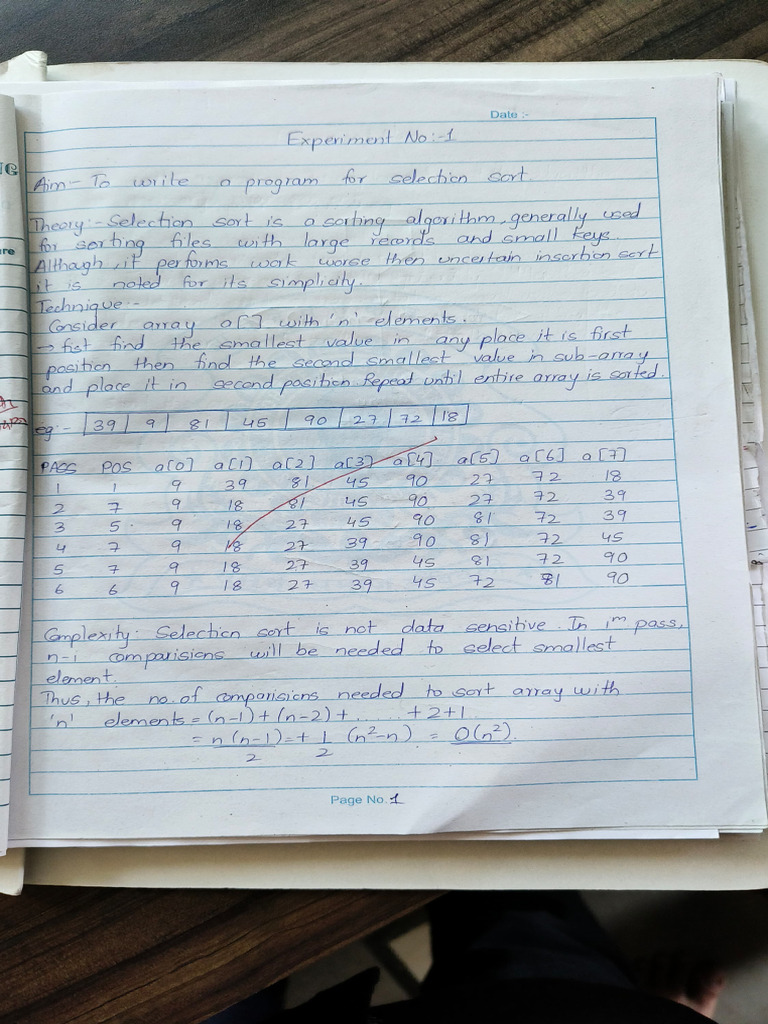 Date :-
Experiment No:-1
Aim:- To write a program for selection sort
Theory:- Selection sort is a sorting algorithm, generally used
for sorting files with large records and small keys.
Although, it performs work worse then uncertain insertion sort
it is noted for its simplicity.
Technique:-
Consider array a[] with 'n' elements.
→ fist find the smallest value in any place it is first
position then find the second smallest value in sub-array
and place it in second position Repeat until entire array is sorted.
eg:- 39 9 81 45 90 27 72 18
PASS POS a[0] a[1] a[2] a[3] a[4] a[5] a[6] a[7]
1 1 9 39 81 45 90 27 72 18
2 7 9 18 81 45 90 27 72 39
3 5 9 18 27 45 90 81 72 39
4 7 9 18 27 39 90 81 72 45
5 7 9 18 27 39 45 81 72 90
6 6 9 18 27 39 45 72 81 90
Complexity: Selection sort is not data sensitive. In i^m pass,
n-i comparisions will be needed to select smallest
element.
Thus, the no. of comparisions needed to sort array with
'n' elements = (n-1) + (n-2) + ...... + 2+1
= n(n-1)/2 = + 1/2 (n²-n) = O(n²).
Page No. 1